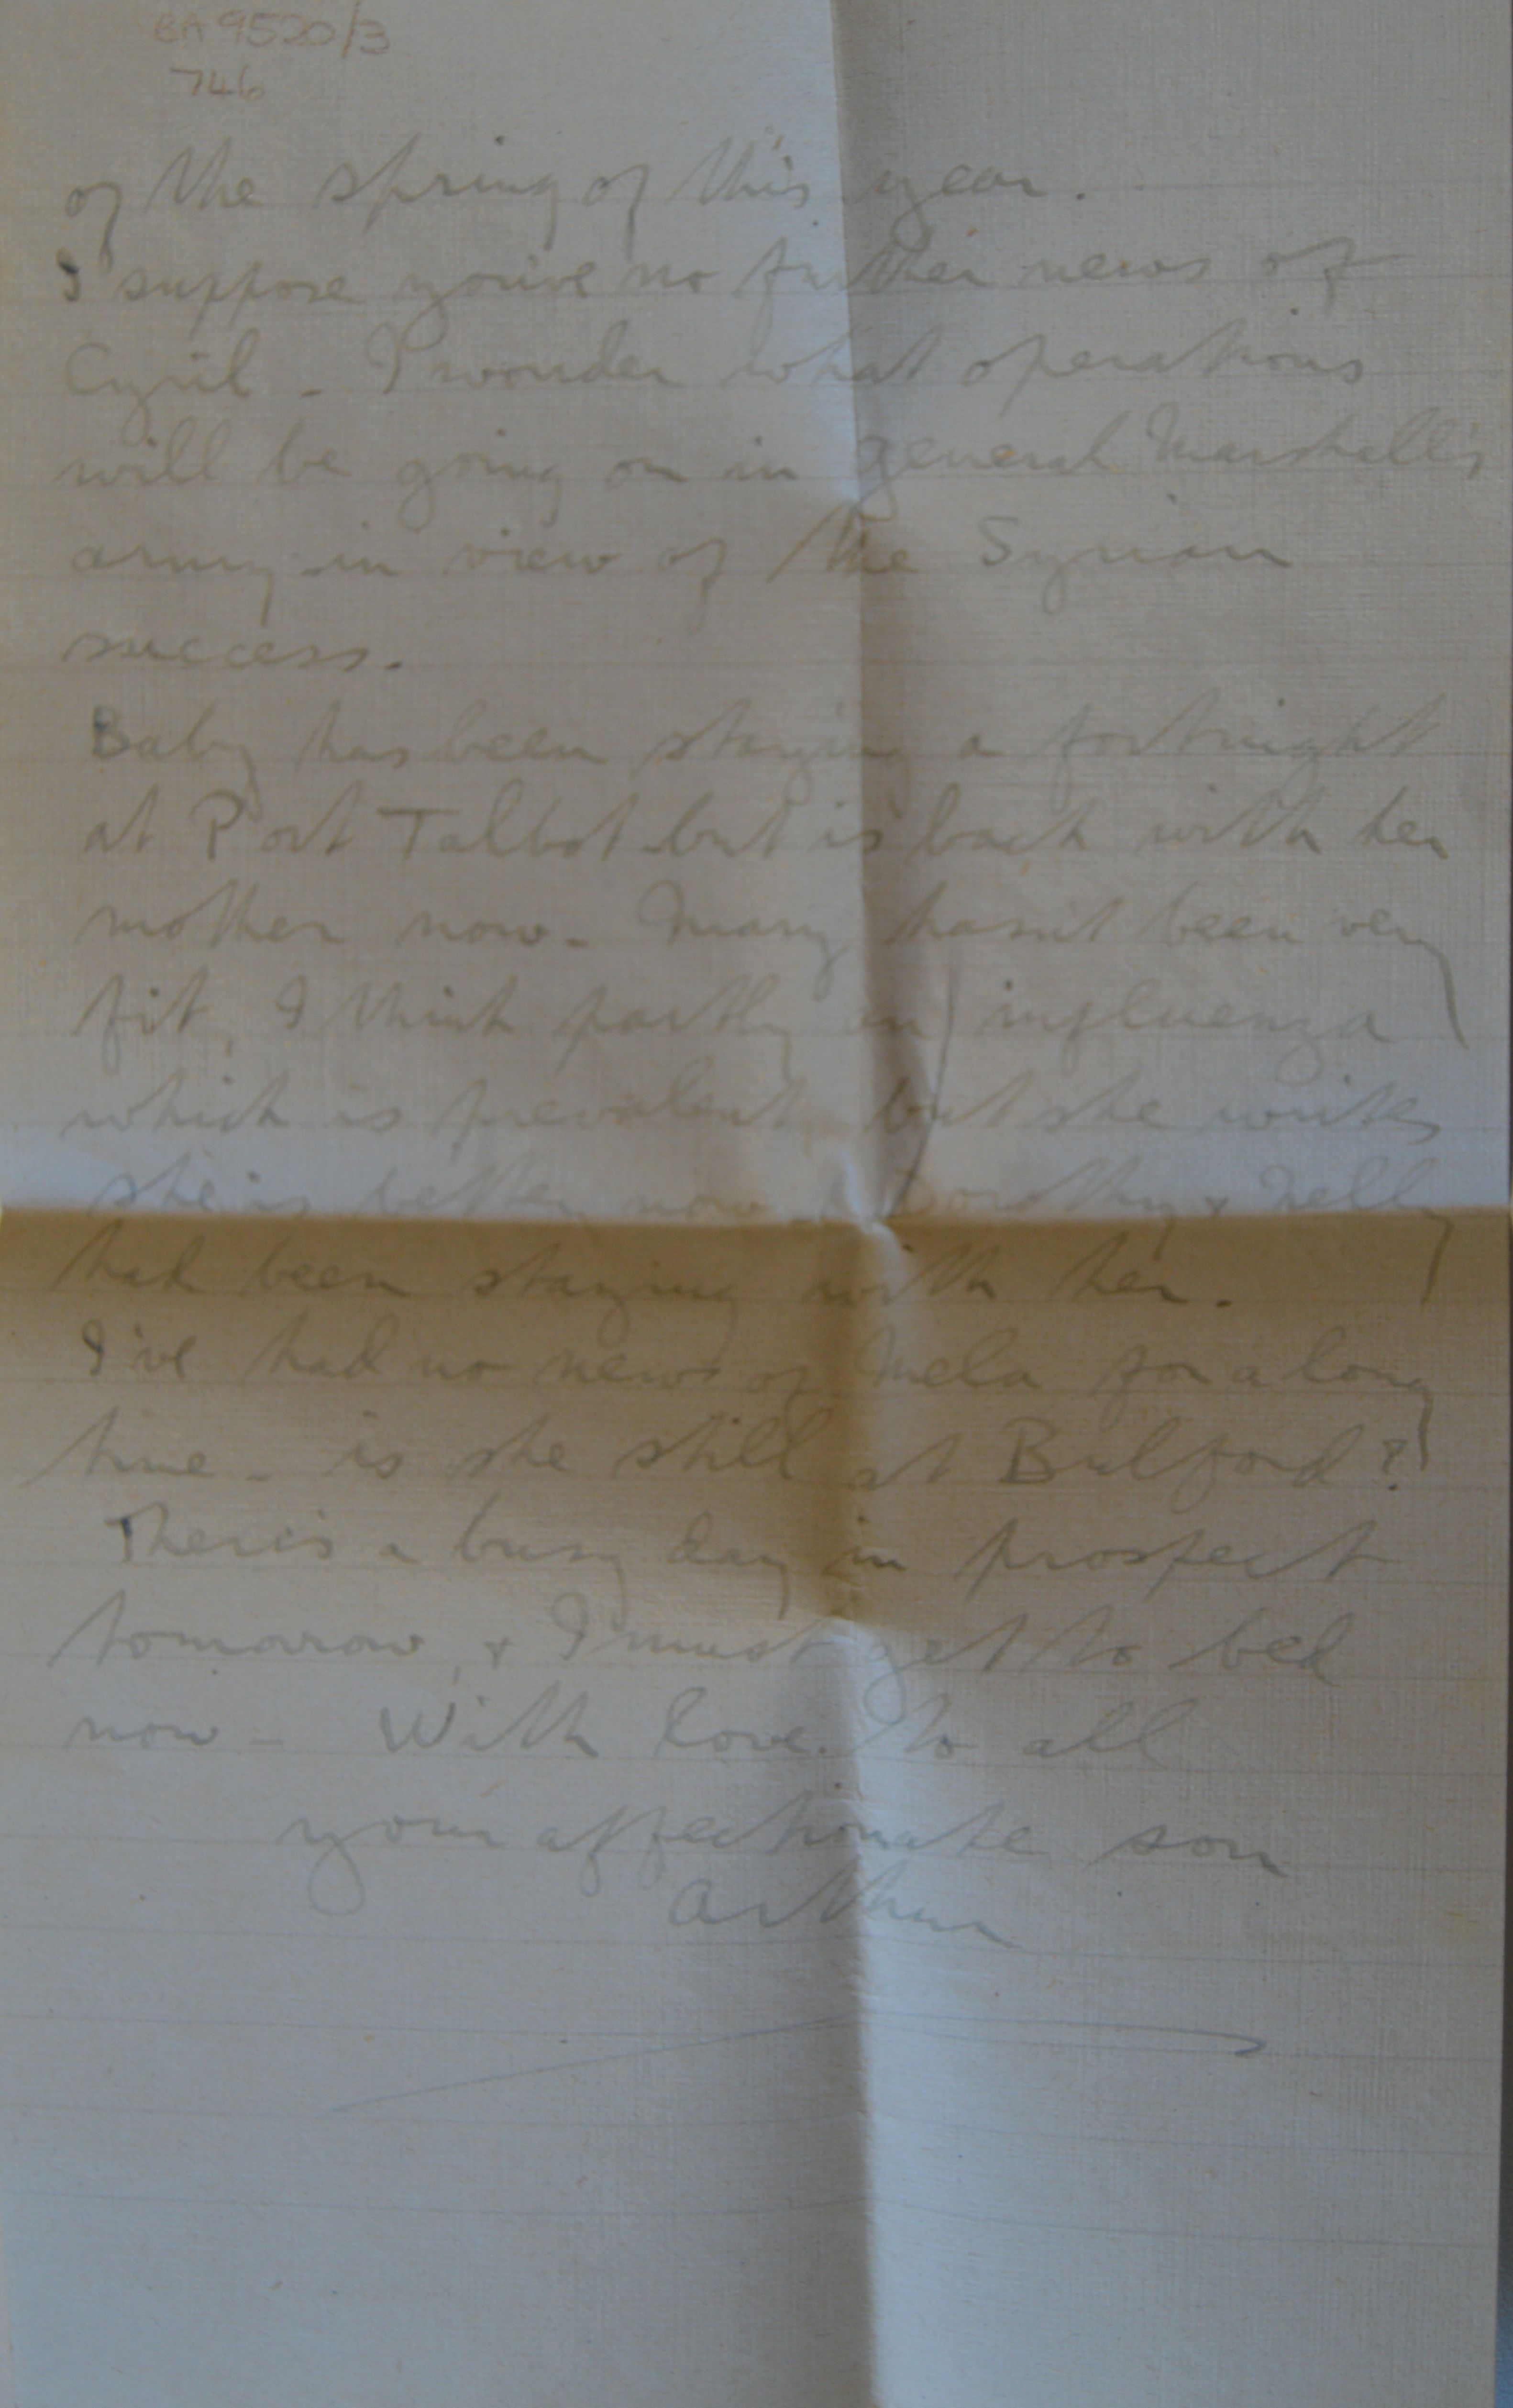 BA 9520/3
746
of the spring of this year.
I suppose you've no further news of
Cyril - I wonder what operations
will be going on in General Marshall's
army in view of the Syrian
success.
Baby has been staying a fortnight
at Port Talbot but is back with her
mother now. Mary hasn't been very
fit, I think partly an influenza
which is prevalent, but she writes
she is better now & Dorothy & Nelly
had been staying with her.
I've had no news of Mela for a long
time - is she still at Bulford?
There's a busy day in prospect
tomorrow, & I must get to bed
now - With love to all
your affectionate son
Arthur